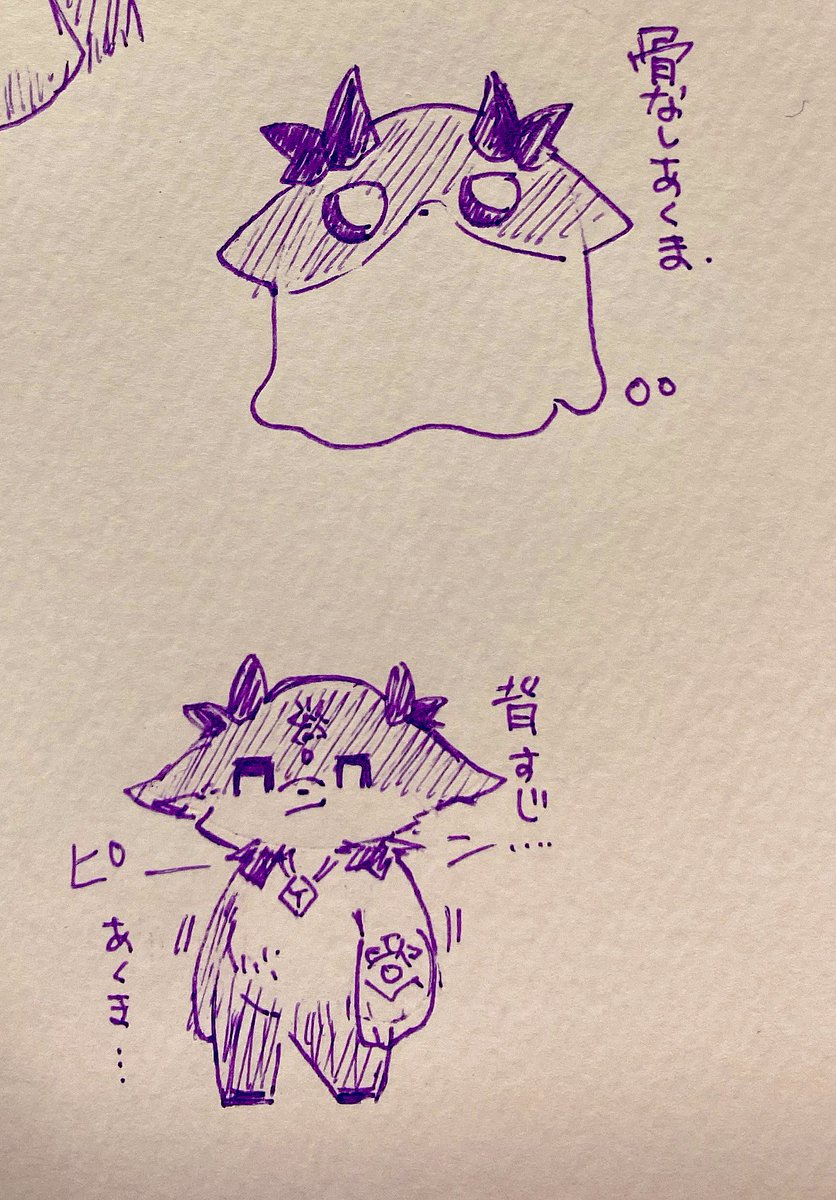 骨なしあくま.
背すじ
ピーン....
あくま...